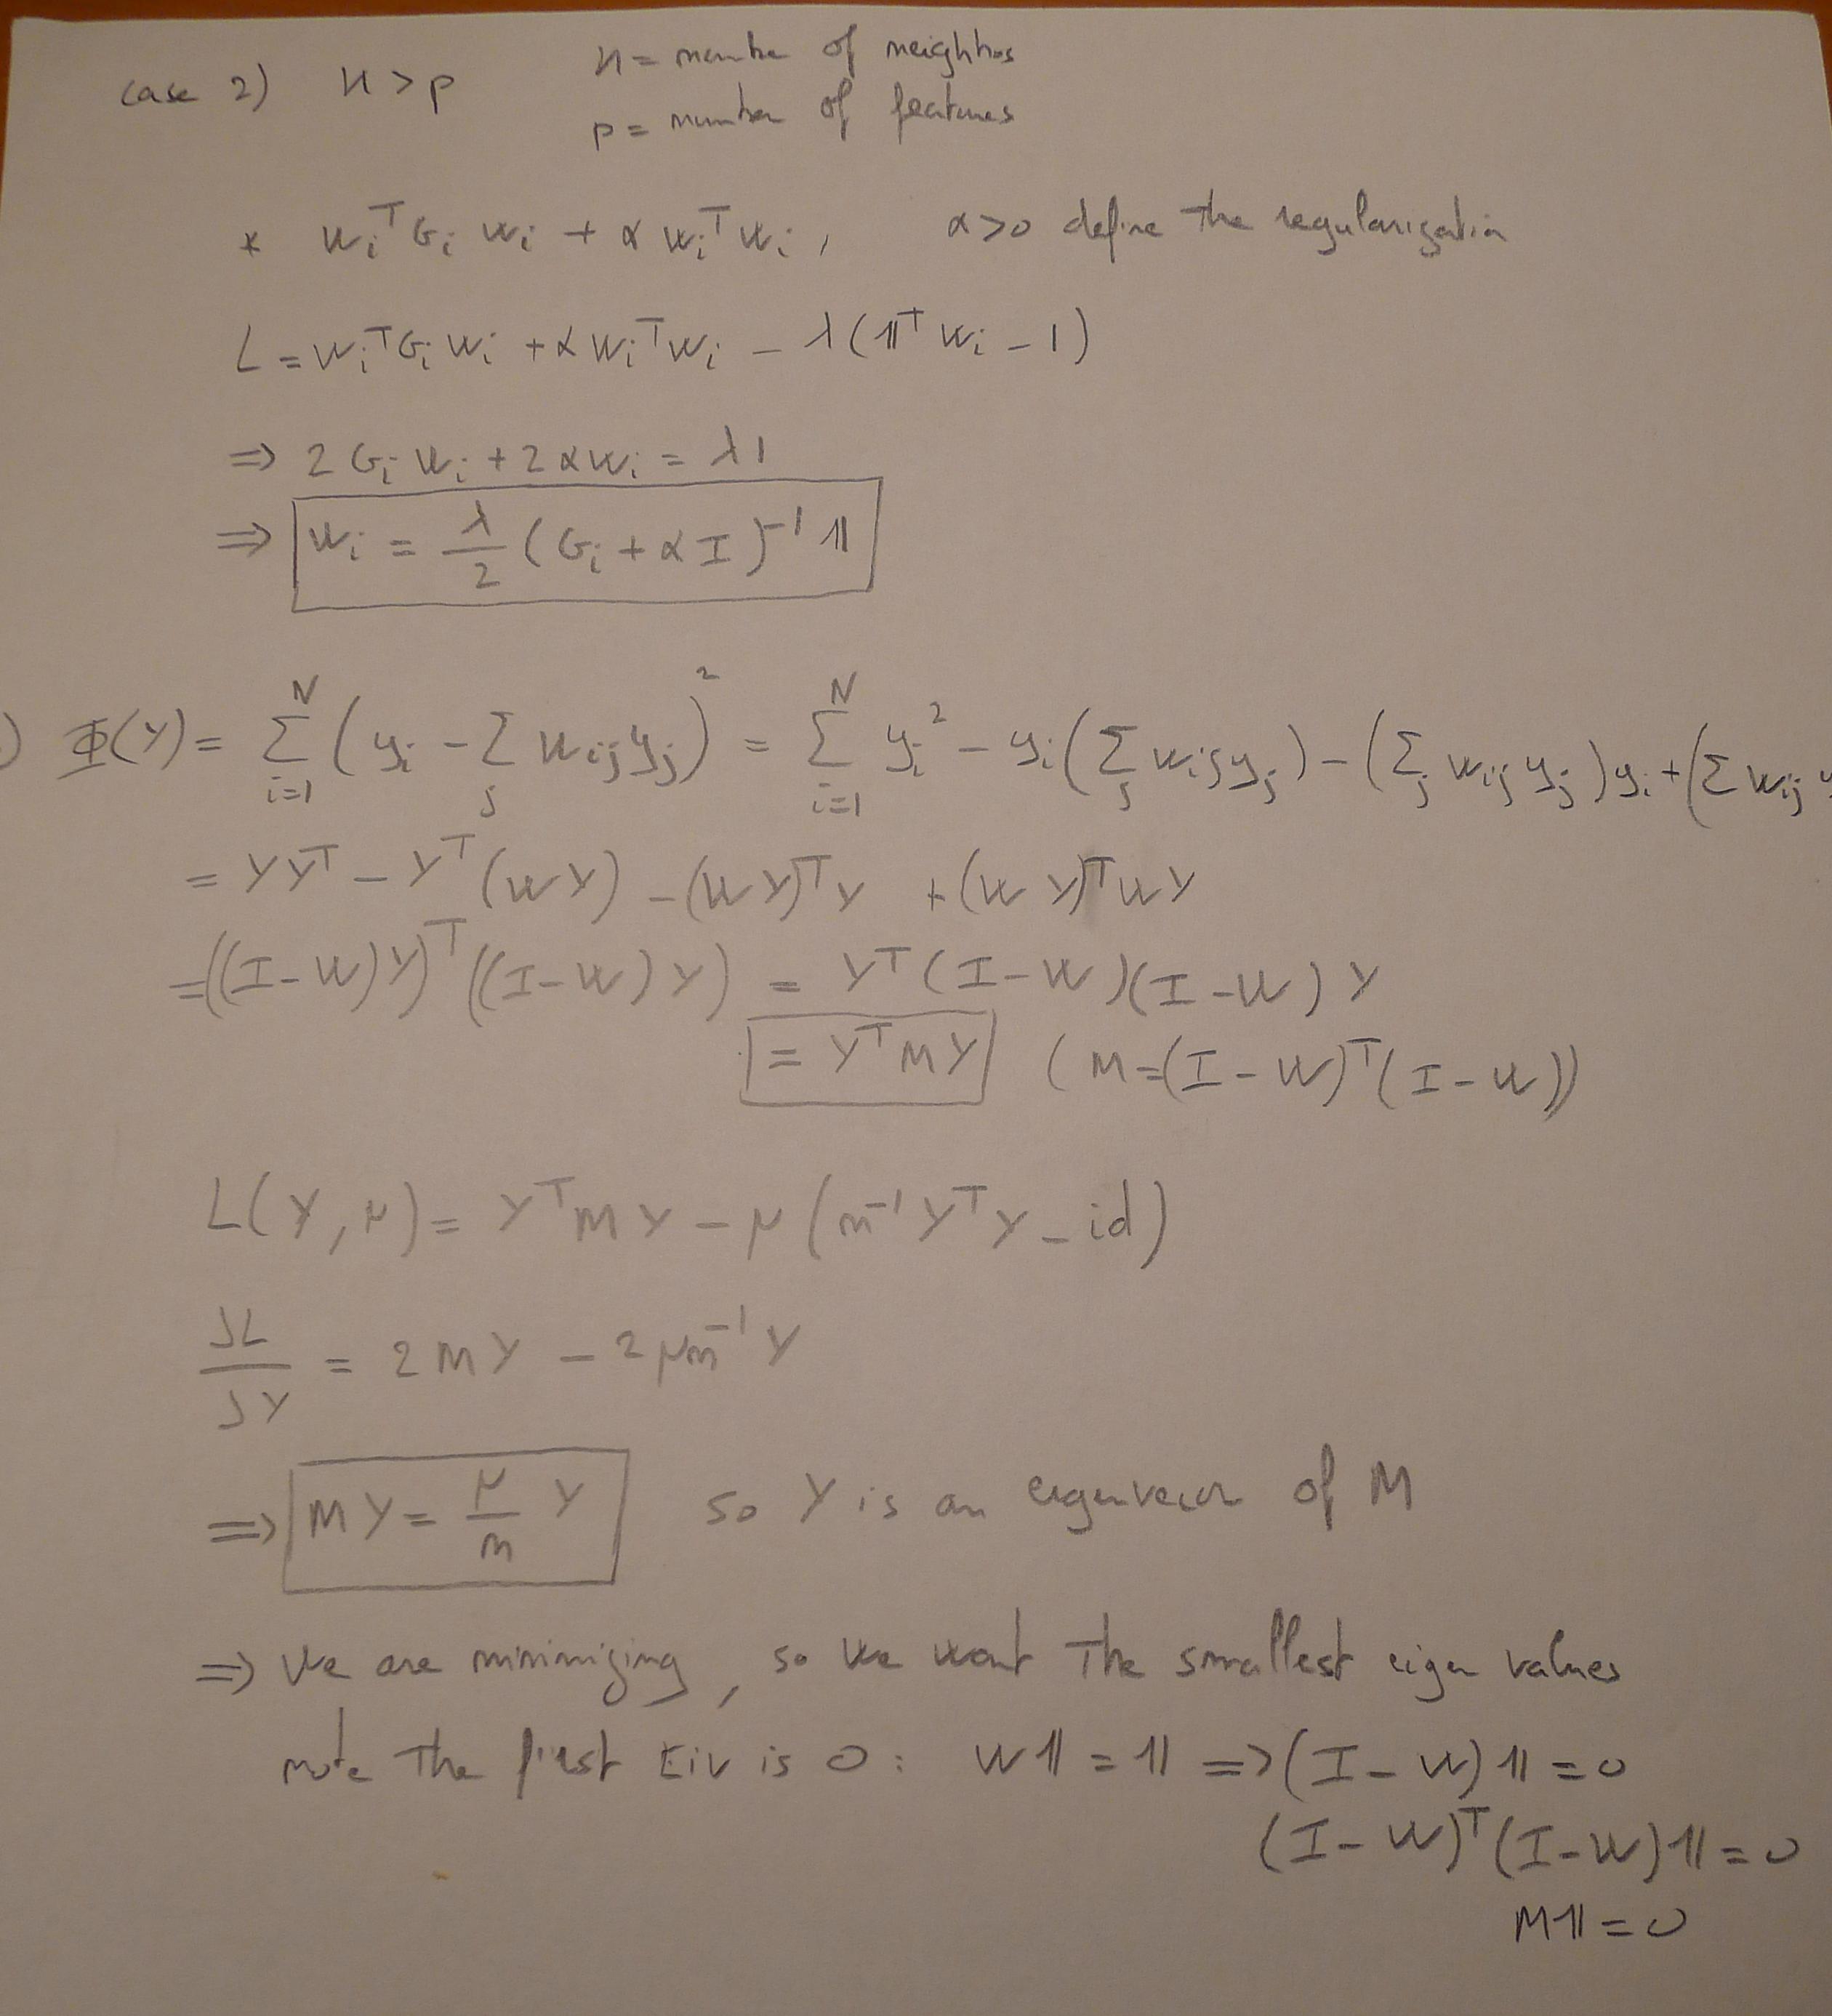 case 2) K > p K = number of neighbors
p = number of features
* w_i^T G_i w_i + α w_i^T w_i , α>0 define the regularization
L = w_i^T G_i w_i + α w_i^T w_i - λ(𝟙^T w_i - 1)
=> 2 G_i w_i + 2 α w_i = λ 1
=> w_i = λ/2 (G_i + α I)^-1 𝟙
) Φ(Y) = Σ_{i=1}^N (y_i - Σ_j w_ij y_j)^2 = Σ_{i=1}^N y_i^2 - y_i (Σ_j w_ij y_j) - (Σ_j w_ij y_j) y_i + (Σ w_ij y
= Y Y^T - Y^T (W Y) - (W Y)^T Y + (W Y)^T W Y
= ((I - W) Y)^T ((I - W) Y) = Y^T (I - W)(I - W) Y
= Y^T M Y (M = (I - W)^T (I - W))
L(Y, μ) = Y^T M Y - μ (n^-1 Y^T Y - id)
δL/δY = 2 M Y - 2 μ n^-1 Y
=> M Y = μ/n Y so Y is an eigenvector of M
=> We are minimizing, so we want the smallest eigen values
note the first Eiv is 0 : W 𝟙 = 𝟙 => (I - W) 𝟙 = 0
(I - W)^T (I - W) 𝟙 = 0
M 𝟙 = 0